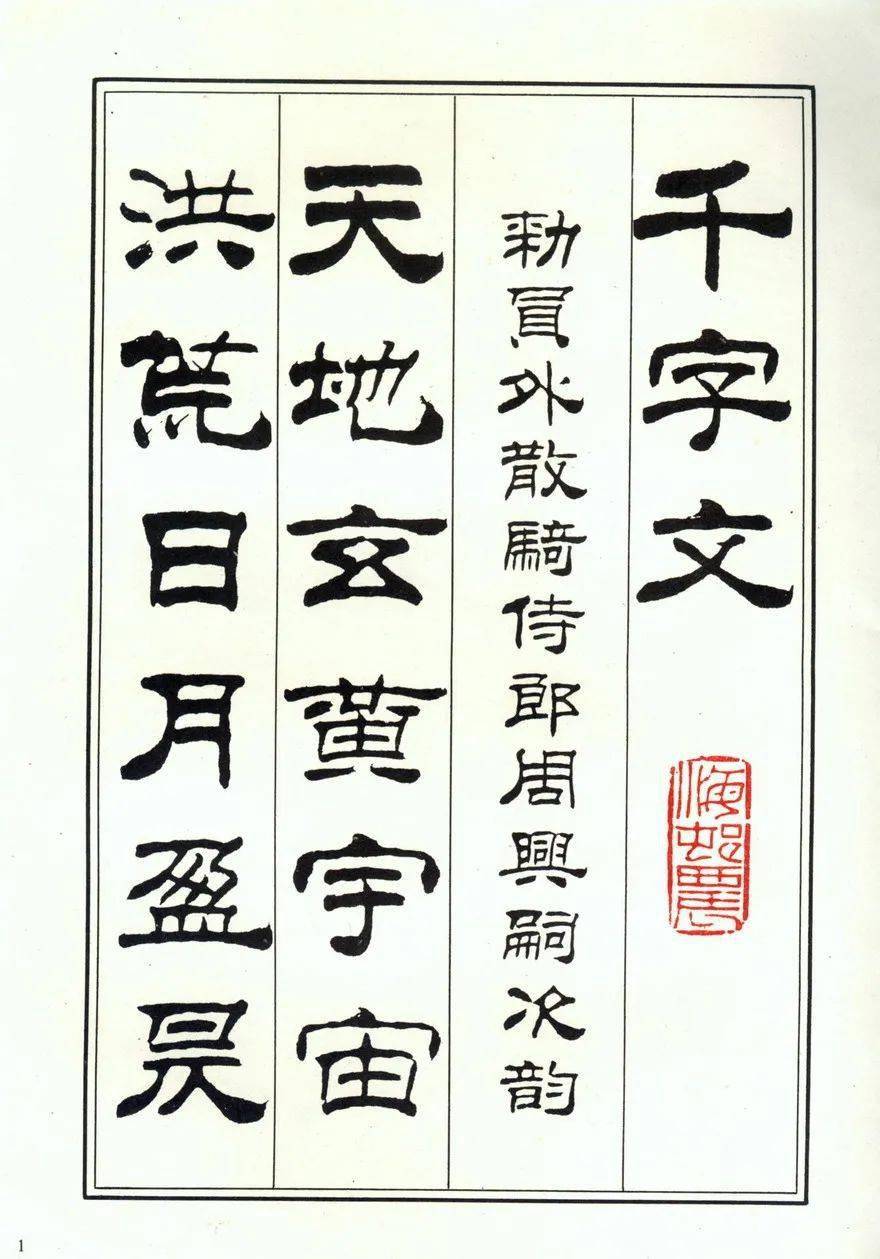 千字文
勑員外散騎侍郎周興嗣次韵
天地玄黃宇宙
洪荒日月盈昃
1